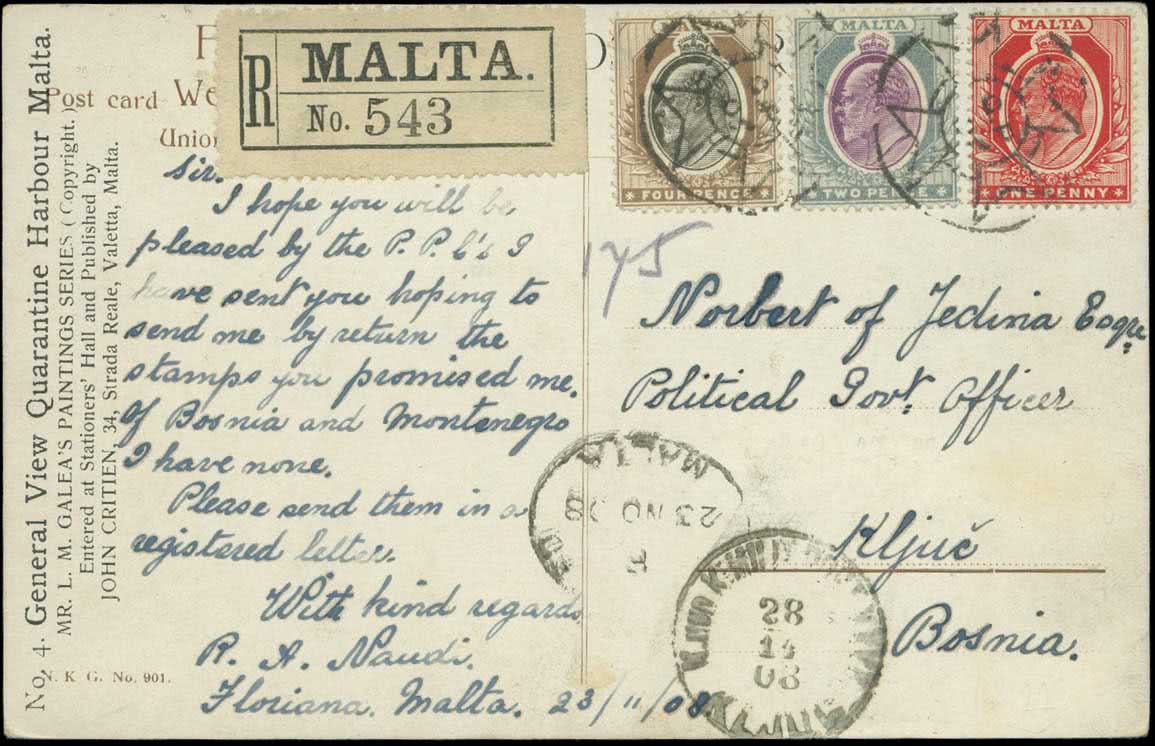 No. 4. General View Quarantine Harbour Malta.
MR. L. M. GALEA'S PAINTINGS SERIES (Copyright.)
Entered at Stationers' Hall and Published by
JOHN CRITIEN, 34, Strada Reale, Valetta, Malta.
N. K. G. No. 901.
Post card
Union
R
MALTA.
No. 543
MALTA
FOUR PENCE
MALTA
TWO PENCE
MALTA
ONE PENNY
Sir.
I hope you will be
pleased by the P. P. C's I
have sent you hoping to
send me by return the
stamps you promised me.
Of Bosnia and Montenegro
I have none.
Please send them in a
registered letter.
With kind regards
R. A. Naudi.
Floriana. Malta. 23/11/08
175
Norbert of Jedina Esqre
Political Govt. Officer
Ključ
Bosnia.
MALTA
23 NO 08
28
11
08
KLJUČ